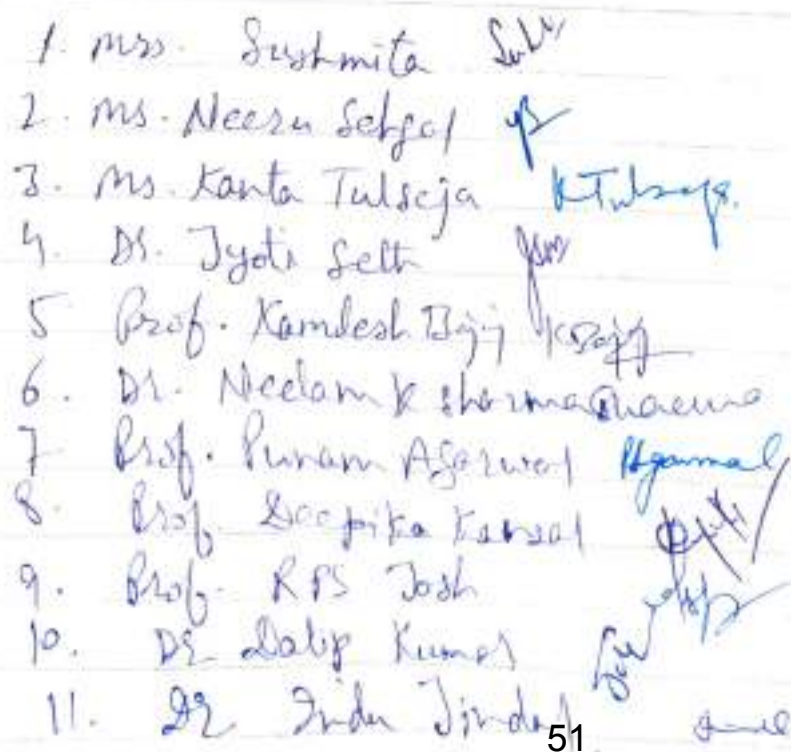 1. Mrs. Sushmita
2. Ms. Neeru Sehgal
3. Ms. Kanta Tulseja K Tulseja
4. Dr. Jyoti Seth
5 Prof. Kamlesh Bajaj KBajaj
6. Dr. Neelam K Sharma Sharma
7 Prof. Punam Agarwal PAgarwal
8. Prof. Deepika Kansal
9. Prof. RPS Josh
10. Dr Dalip Kumar
11. Dr Indu Jindal
51